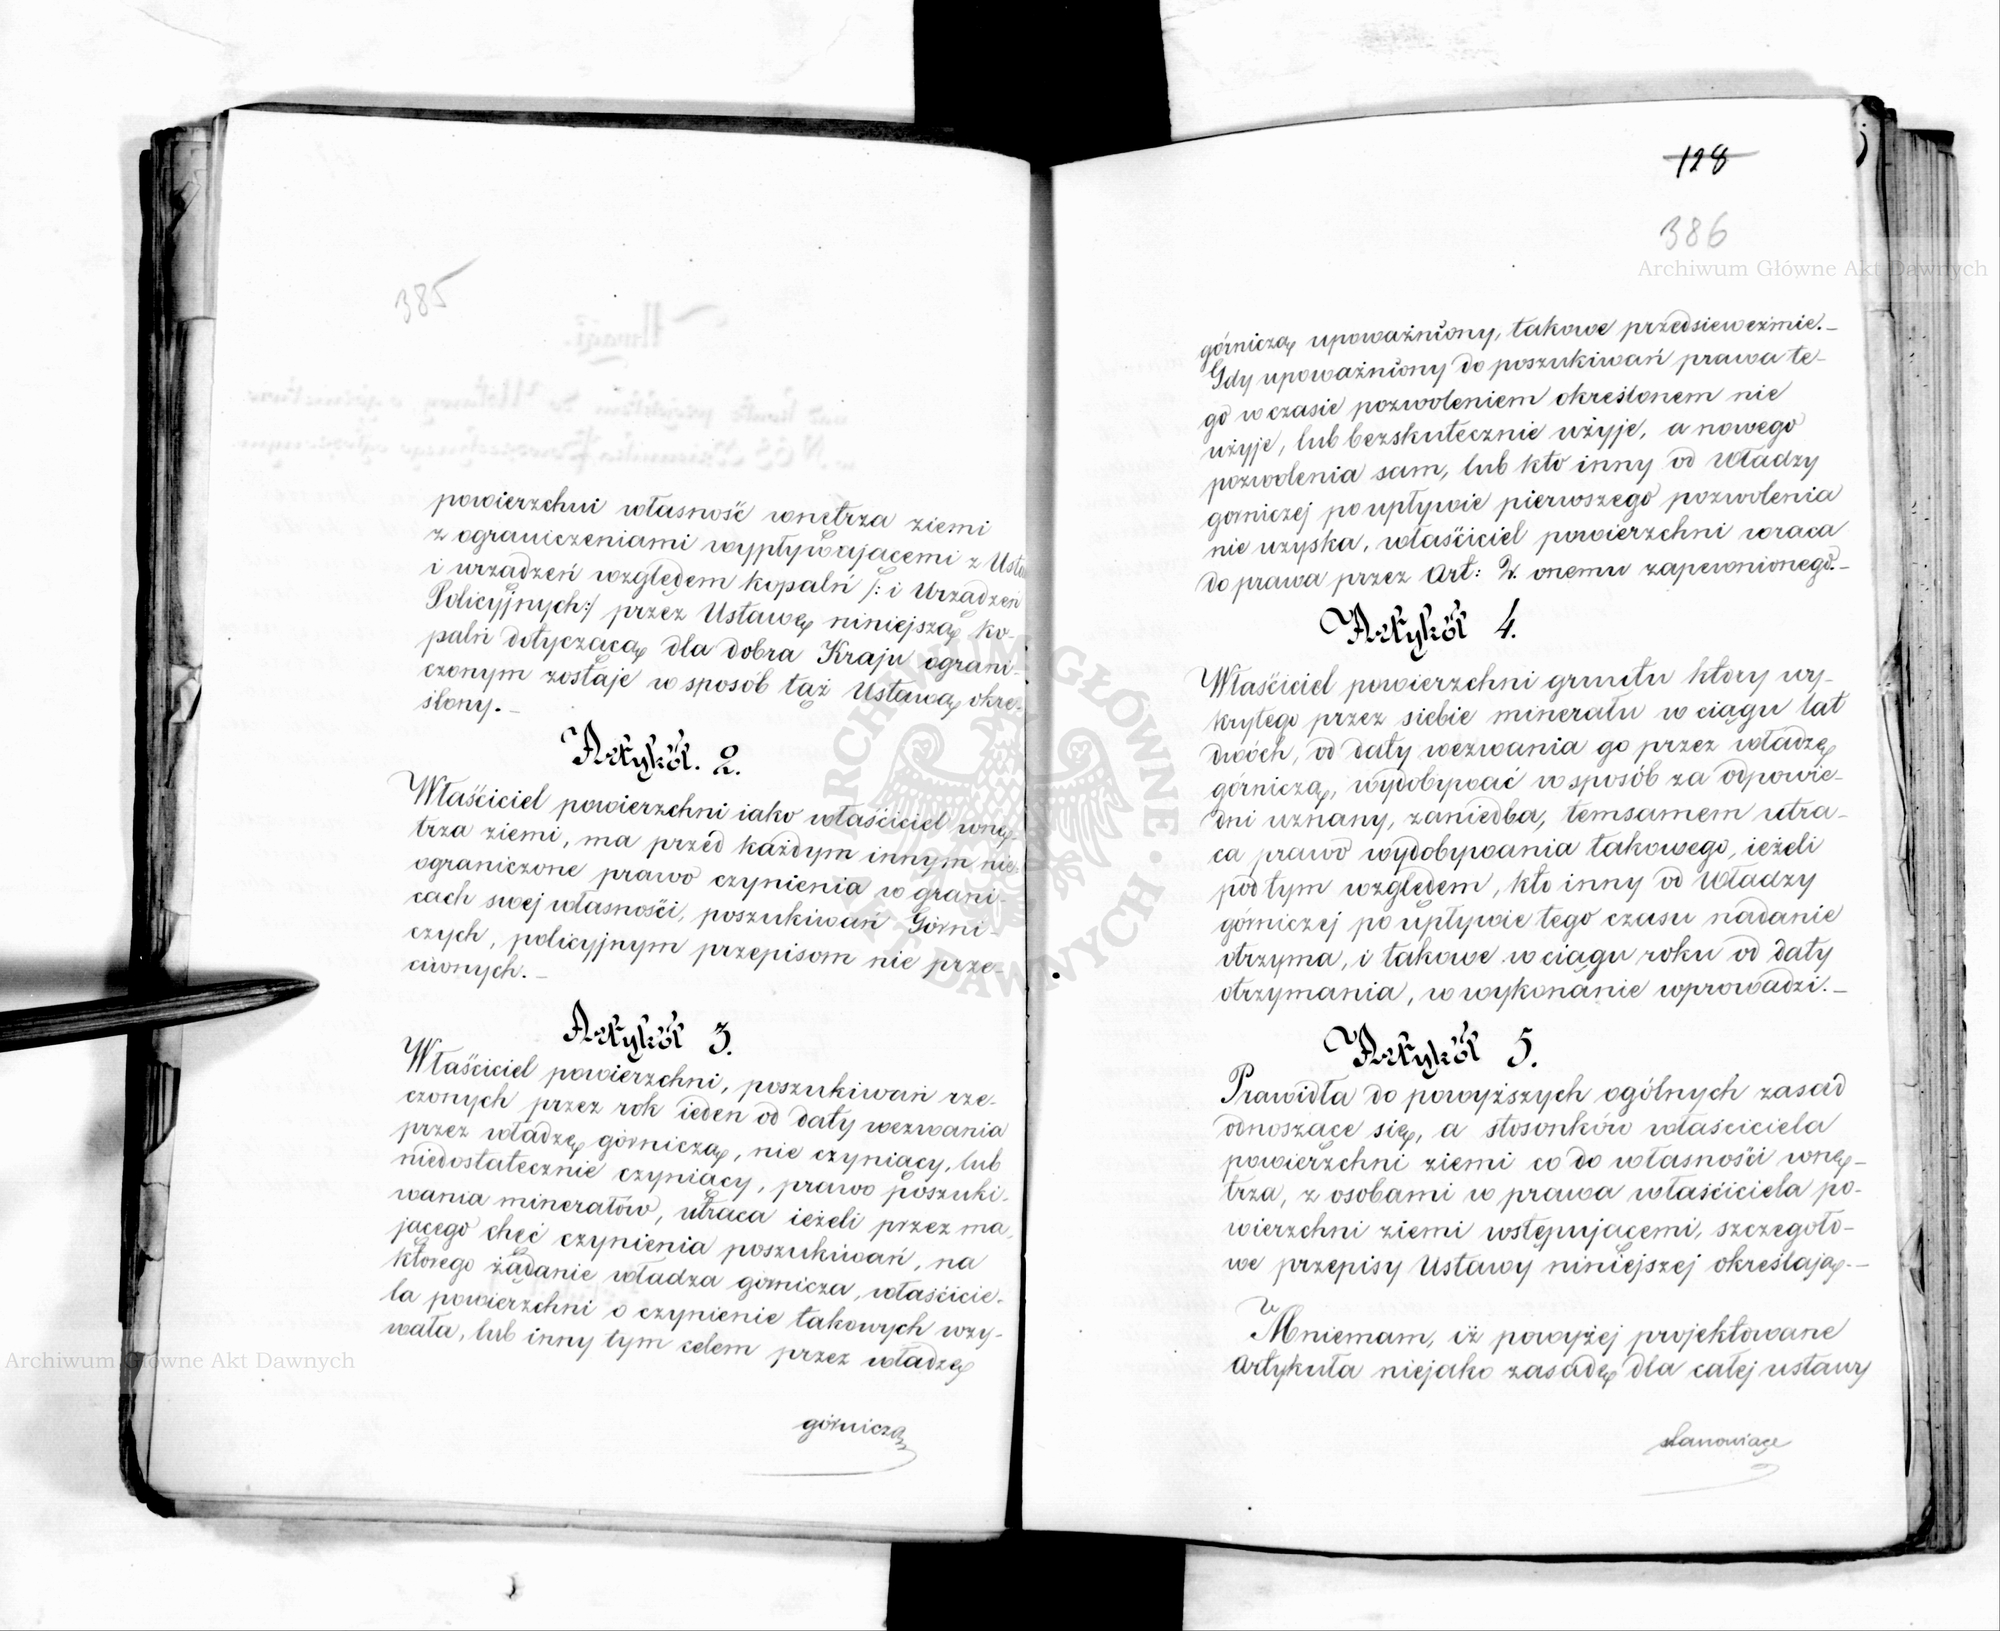 385
powierzchni własność wnetrza ziemi
z ograniczeniami wypływającemi z Ustaw
i urządzeń względem kopalń /: i Urządzeń
Policyjnych:/ przez Ustawę niniejszą ko-
palń dotyczącą dla dobra Kraju ograni-
czonym zostaje w sposób tąż Ustawą okre-
ślony.-
Artykół. 2.
Właściciel powierzchni iako właściciel wnę-
trza ziemi, ma przed każdym innym nie-
ograniczone prawo czynienia w grani-
cach swej własności, poszukiwań Górni-
czych, policyjnym przepisom nie prze-
ciwnych.-
Artykół 3.
Właściciel powierzchni, poszukiwań rze-
czonych przez rok ieden od daty wezwania
przez władzę górniczą, nie czyniący, lub
niedostatecznie czyniący, prawo poszuki-
wania minerałów, utraca ieżeli przez ma-
jącego chęć czynienia poszukiwań, na
którego żądanie władza górnicza, właścicie-
la powierzchni o czynienie takowych wzy-
wała, lub inny tym celem przez władzę
górniczą
128
386
górniczą upoważniony, takowe przedsieweźmie.-
Gdy upoważniony do poszukiwań prawa te-
go w czasie pozwoleniem określonem nie
użyje, lub bezskutecznie użyje, a nowego
pozwolenia sam, lub kto inny od Władzy
gorniczej po upływie pierwszego pozwolenia
nie uzyska, właściciel powierzchni wraca
do prawa przez Art: 2. onemu zapewnionego.-
Artykół 4.
Właściciel powierzchni gruntu który wy-
krytego przez siebie minerału w ciągu lat
dwóch, od daty wezwania go przez władzę
górniczą, wydobywać w sposób za odpowie-
dni uznany, zaniedba, temsamem utra-
ca prawo wydobywania takowego, ieżeli
pod tym względem, kto inny od Władzy
górniczej po upływie tego czasu nadanie
otrzyma, i takowe w ciągu roku od daty
otrzymania, w wykonanie wprowadzi.-
Artykół 5.
Prawidła do powyższych ogólnych zasad
odnoszące się, a stosonków właściciela
powierzchni ziemi co do własności wnę-
trza, z osobami w prawa właściciela po-
wierzchni ziemi wstępującemi, szczegoło-
we przepisy Ustawy niniejszej określają.-
Mniemam, iż powyżej projektowane
Artykuła niejako zasadę dla całej ustawy
stanowiące
Archiwum Główne Akt Dawnych
Archiwum Główne Akt Dawnych
ARCHIWUM GŁÓWNE AKT DAWNYCH